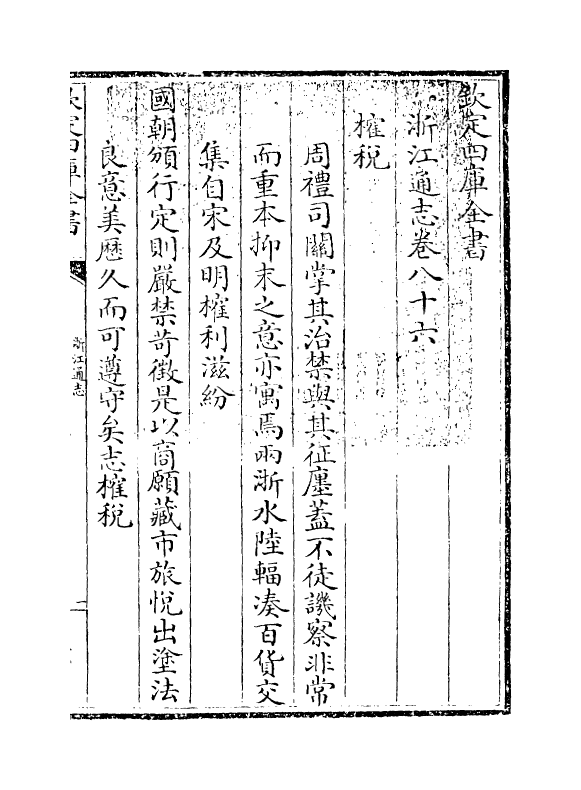 欽定四庫全書
浙江通志卷八十六
榷稅
周禮司關掌其治禁與其征廛蓋不徒譏察非常
而重本抑末之意亦寓焉兩浙水陸輻湊百貨交
集自宋及明榷利滋紛
國朝頒行定則嚴禁苛徵是以商願藏市旅悅出塗法
良意美歷久而可遵守矣志榷稅
欽定四庫全書
浙江通志
一